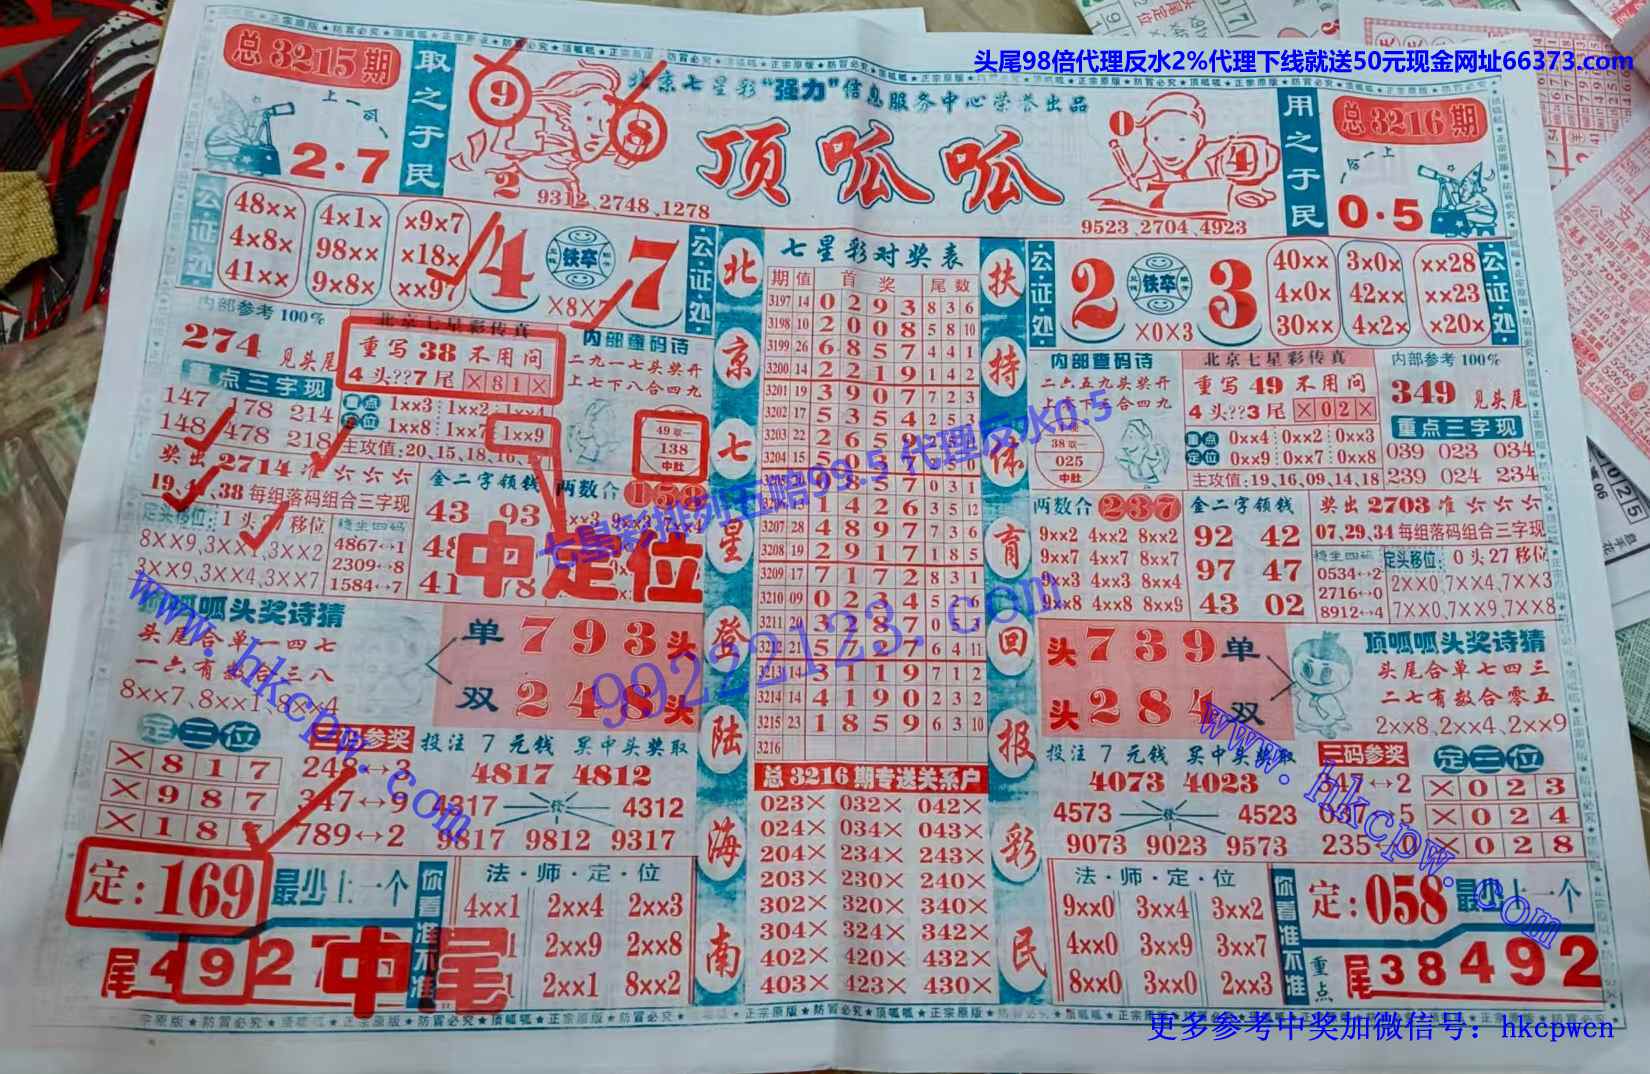 头尾98倍代理反水2%代理下线就送50元现金网址66373.com
总3215期
取之于民
北京七星彩“强力”信息服务中心荣誉出品
顶呱呱
用之于民
总3216期
上一
2·7
9
8
2
9312、2748、1278
0
4
9523、2704、4923
0·5
公证处
48×× 4×1× ×9×7
4×8× 98×× ×18×
41×× 9×8× ××97
4 铁卒 7
×8×7
公证处
北京七星登陆海南
七星彩对奖表
扶特体育回报彩民
公证处
2 铁卒 3
×0×3
40×× 3×0× ××28
4×0× 42×× ××23
30×× 4×2× ×20×
公证处
内部参考100%
274 见头尾
重点三字现
147 178 214
148 478 218
北京七星彩传真
重写38不用问
4头??7尾 ×81×
重点定位
1××3 1××2 1××4
1××8 1××7 1××9
主攻值:20、15、18、16、
内部查码诗
二九一七头奖开
上七下八合四九
49取一
138
中肚
奖出2714准六六六
19、4、38每组落码组合三字现
定头移位:1头2 移位
8××9、3××1、3××2
3××9、3××4、3××7
稳坐四码
4867↔1
2309↔8
1584↔7
金二字领钱
43 93
41 78
两数合 158
中定位
期 值 首奖 尾数
3197 14 0 2 9 3 8 3 6
3198 10 2 0 0 8 5 8 10
3199 26 6 8 5 7 4 4 1
3200 14 2 2 1 9 1 4 2
3201 19 3 9 0 7 7 2 3
3202 17 5 3 5 4 2 5 3
3203 22 2 6 5 9
3204 15 5 0
0 8 5 7 0 3 1
1 4 2 6 3 5 12
3207 28 4 8 9 7 7 3 6
3208 19 2 9 1 7 1 8 5
3209 17 7 1 7 2 8 3 1
3210 09 0 2 3 4 5 2 6
3211 20 3 2 8 7 0 5 3
3212 21 5 7 7 6 4 11
3213 14 3 1 1 9 7 1 2
3214 14 4 1 9 0 2 3 2
3215 23 1 8 5 9 6 3 10
3216
总3216期专送关系户
023× 032× 042×
024× 034× 043×
204× 234× 243×
203× 230× 240×
302× 320× 340×
304× 324× 342×
402× 420× 432×
403× 423× 430×
内部查码诗
二六五九头奖开
38取一
025
中肚
北京七星彩传真
重写49不用问
4头??3尾 ×02×
重点定位
0××4 0××2 0××3
0××9 0××7 0××8
主攻值:19、16、09、14、18
内部参考100%
349 见头尾
重点三字现
039 023 034
239 024 234
两数合 237
9××2 4××2 8××2
9××7 4××7 8××7
9××3 4××3 8××4
9××8 4××8 8××9
金二字领钱
92 42
97 47
43 02
奖出2703准六六六
07、29、34每组落码组合三字现
稳坐四码
0534↔2
2716↔0
8912↔4
定头移位:0头27移位
2××0、7××4、7××3
7××0、7××9、7××8
呱头奖诗猜
头尾合单一四七
一六有数合三八
8××7、8××1、8××4
单793头
双248头
头739单
头284双
顶呱呱头奖诗猜
头尾合单七四三
二七有数合零五
2××8、2××4、2××9
定三位
×817
×987
×187
三码参奖
248↔3
347↔9
789↔2
投注7元钱 买中头奖取
4817 4812
4317 4312
9817 9812 9317
投注7元钱 买中头奖取
4073 4023
4573 4523
9073 9023 9573
三码参奖
347↔2
235 0
定三位
×023
×024
×028
定:169 最少上一个
尾4927
中尾
你看准不准
法·师·定·位
4××1 2××4 2××3
2××9 2××8
2××1 8××2
法·师·定·位
9××0 3××4 3××2
4××0 3××9 3××7
8××0 3××0 2××3
你看准不准
定:058 最少上一个
重点
尾38492
七星彩排列五赔99.5 代理反水0.5
99222123.com
www.hkcpw.com
www.hkcpw.com
更多参考中奖加微信号：hkcpwcn